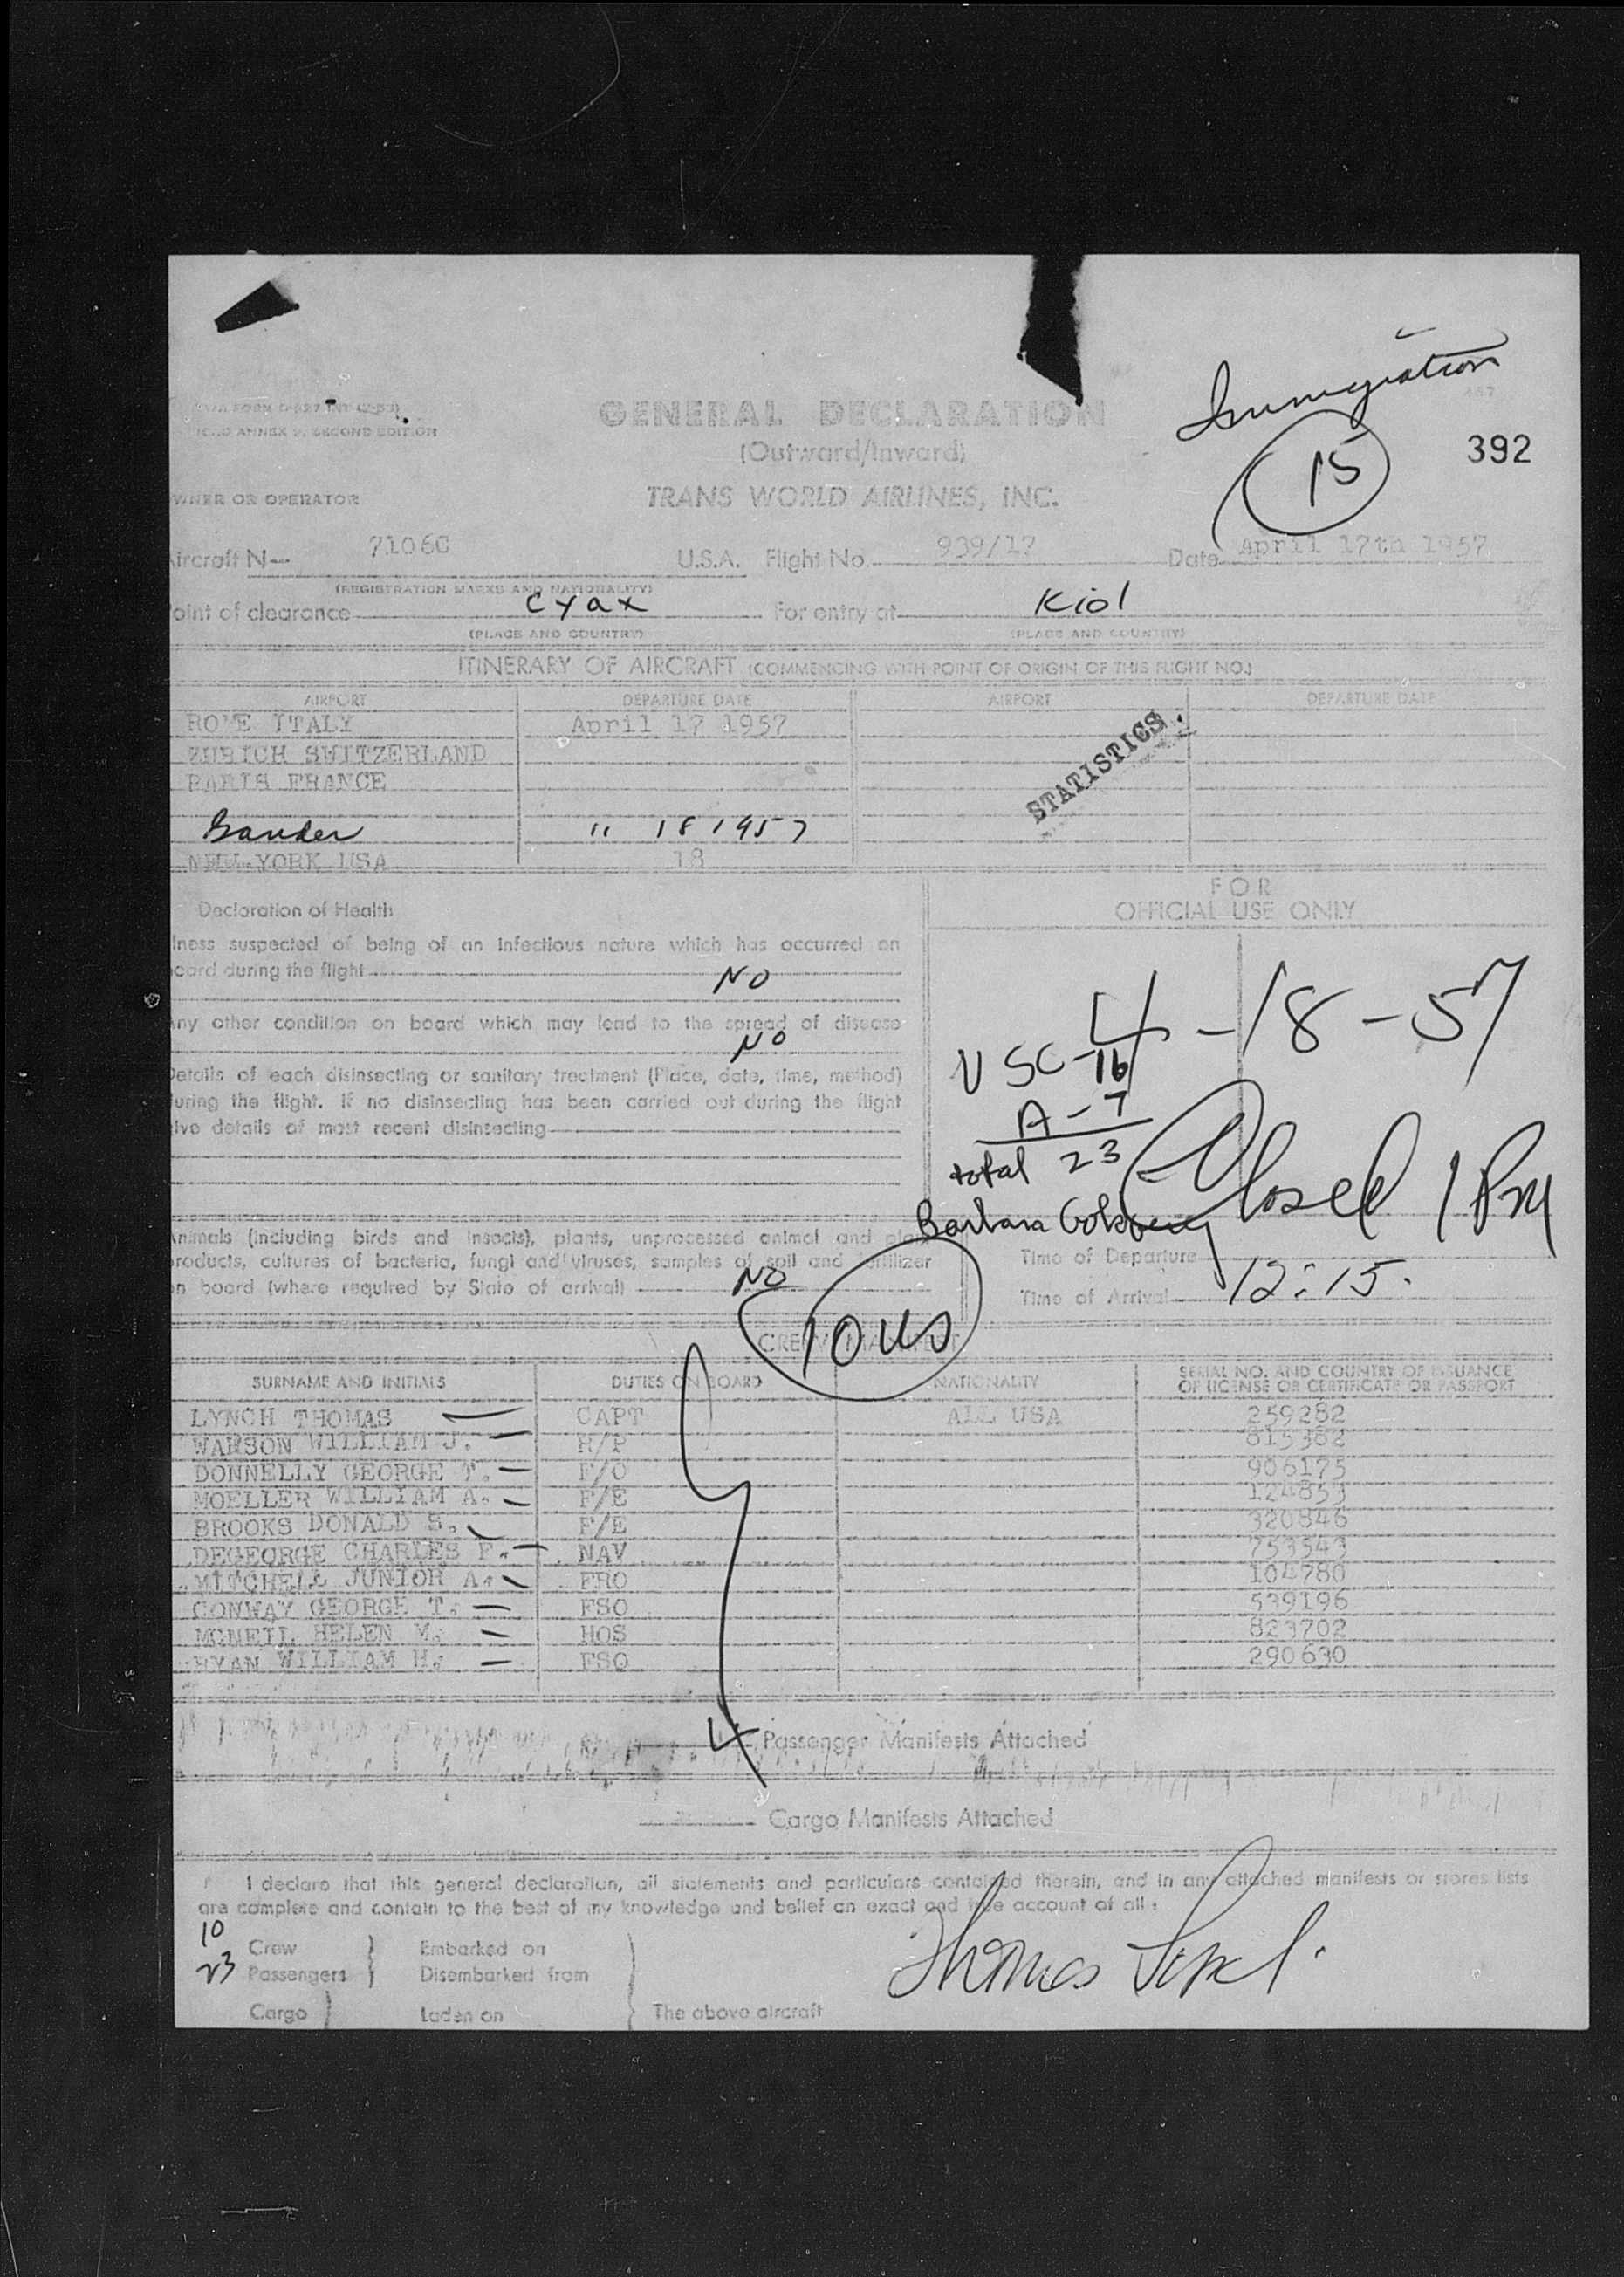 Immigration
15
392
TWA FORM
ICAO ANNEX 9, SECOND EDITION
GENERAL DECLARATION
(Outward/Inward)
OWNER OR OPERATOR
TRANS WORLD AIRLINES, INC.
Aircraft N— 7106C U.S.A. Flight No. 939/17 Date April 17th 1957
(REGISTRATION MARKS AND NATIONALITY)
oint of clearance cyax For entry at Kidl
(PLACE AND COUNTRY) (PLACE AND COUNTRY)
ITINERARY OF AIRCRAFT (COMMENCING WITH POINT OF ORIGIN OF THIS FLIGHT NO.)
AIRPORT DEPARTURE DATE AIRPORT DEPARTURE DATE
ROME ITALY April 17 1957
ZURICH SWITZERLAND
PARIS FRANCE
STATISTICS
Gander " 18 1957
NEW YORK USA 18
FOR
OFFICIAL USE ONLY
Declaration of Health
lness suspected of being of an infectious nature which has occurred on
oard during the flight NO
ny other condition on board which may lead to the spread of disease
NO
Details of each disinsecting or sanitary treatment (Place, date, time, method)
uring the flight. If no disinsecting has been carried out during the flight
ive details of most recent disinsecting
4-18-57
USC-16
A-7
total 23
Closed 1 PM
Barbara Goldberg
nimals (including birds and insects), plants, unprocessed animal and plant
roducts, cultures of bacteria, fungi and viruses, samples of soil and fertilizer
n board (where required by State of arrival) NO
Time of Departure
Time of Arrival 12:15.
10 US
CREW MANIFEST
SURNAME AND INITIALS DUTIES ON BOARD NATIONALITY SERIAL NO. AND COUNTRY OF ISSUANCE
OF LICENSE OR CERTIFICATE OR PASSPORT
LYNCH THOMAS CAPT ALL USA 259282
WAMSON WILLIAM J. R/P 815382
DONNELLY GEORGE T. F/O 906175
MOELLER WILLIAM A. F/E 124853
BROOKS DONALD S. F/E 320846
DEGEORGE CHARLES F. NAV 753543
MITCHELL JUNIOR A. FRO 104780
CONWAY GEORGE T. FSO 539196
MCNEIL HELEN M. HOS 823702
RYAN WILLIAM H. FSO 290630
4 Passenger Manifests Attached
Cargo Manifests Attached
I declare that this general declaration, all statements and particulars contained therein, and in any attached manifests or stores lists
are complete and contain to the best of my knowledge and belief an exact and true account of all:
10 Crew Embarked on
23 Passengers Disembarked from
Cargo Laden on The above aircraft
Thomas